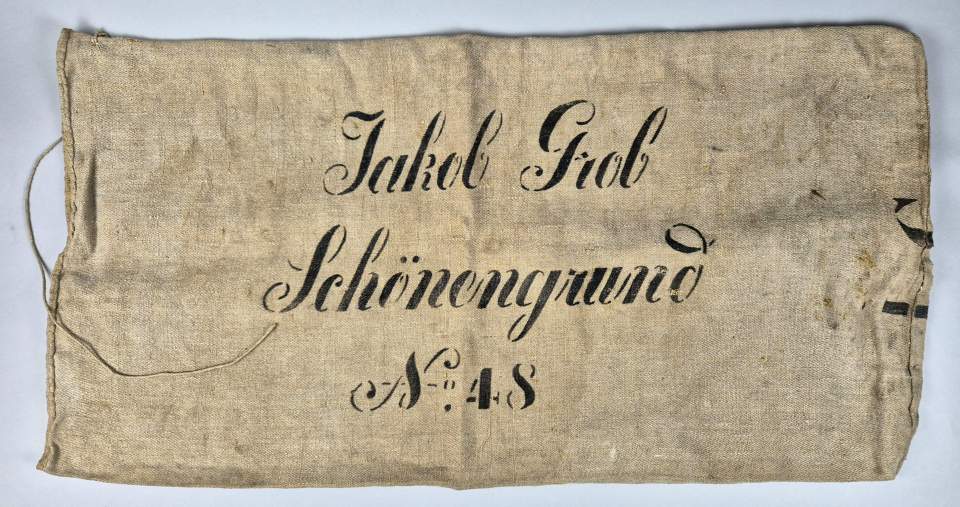 Jakob Grob
Schönengrund
No. 48